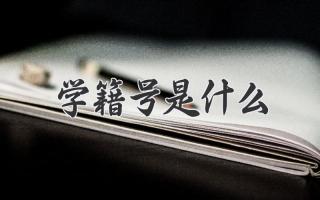 学籍号是什么